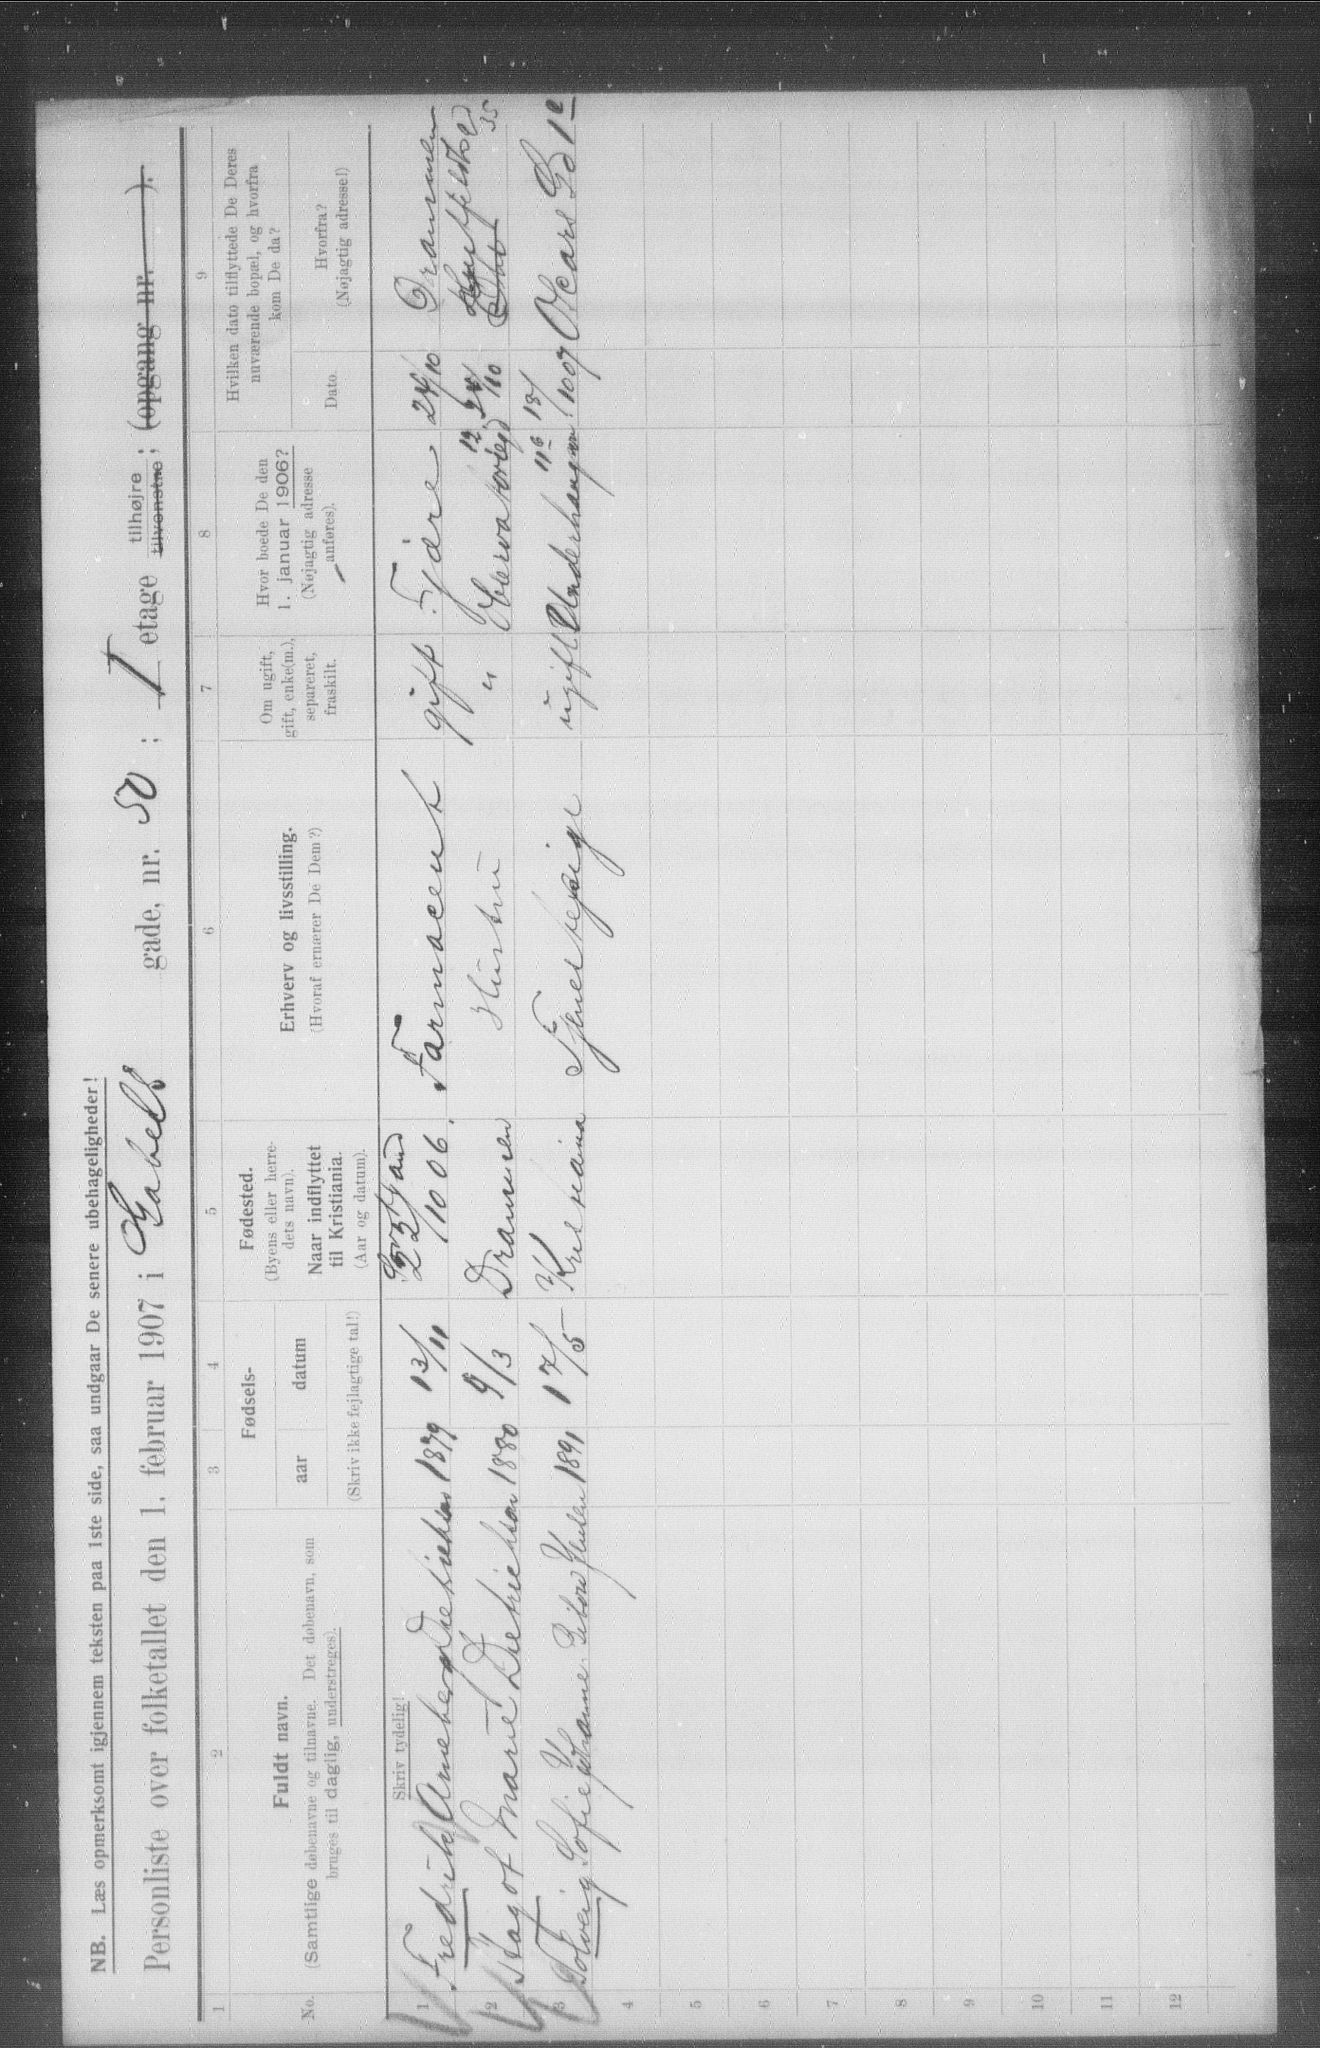 NB. Læs opmerksomt igjennem teksten paa 1ste side, saa undgaar De senere ubehageligheder!
Personliste over folketallet den 1. februar 1907 i Gabels gade, nr. 50 ; I etage tilhøjre tilvenstre ; (opgang nr. ).
1 2 3 4 5 6 7 8 9
No.
Fuldt navn.
(Samtlige døbenavne og tilnavne. Det døbenavn, som
bruges til daglig, understreges).
Fødsels-
aar datum
(Skriv ikke fejlagtige tal!)
Fødested.
(Byens eller herre-
dets navn).
Naar indflyttet
til Kristiania.
(Aar og datum).
Erhverv og livsstilling.
(Hvoraf ernærer De Dem?)
Om ugift,
gift, enke(m.),
separeret,
fraskilt.
Hvor boede De den
1. januar 1906?
(Nøjagtig adresse
anføres).
Hvilken dato tilflyttede De Deres
nuværende bopæl, og hvorfra
kom De da?
Dato.
Hvorfra?
(Nøjagtig adresse!)
Skriv tydelig!
1 Fredrik 1879 13/11 22/10 06. Farmaceut gift 24/10 Drammen
2 Dagot Marie Dietrichson 1880 9/3 Drammen Hustru "
3 Solveig Sofie 1891 17/5 Kristiania Tjenestepige ugift Oscars Gd 1 e
4
5
6
7
8
9
10
11
12